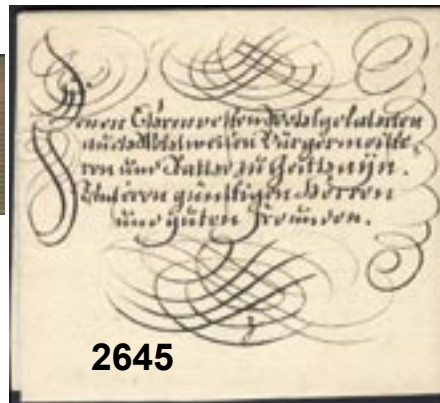 Denen Ehrenvesten Wohlgelahrten
auch Wohlweisen Bürgermeiste,
ren und Rathe zu
Unseren günstigen Herren
und guten Freunden.
2645